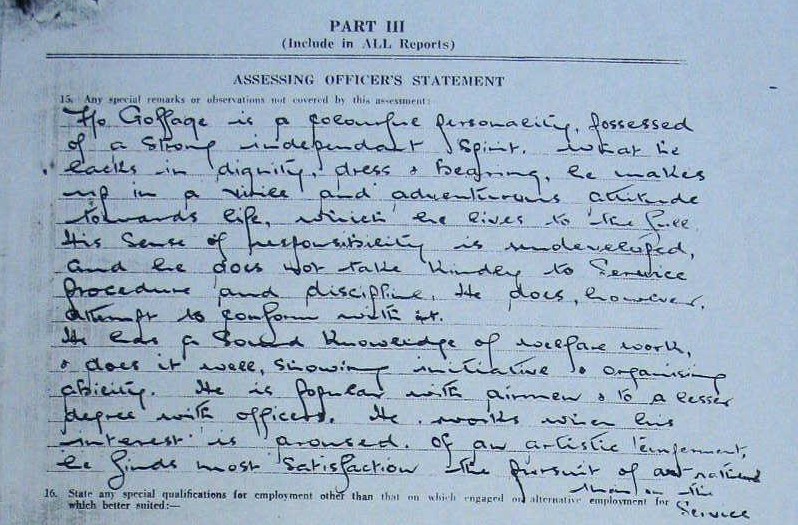 PART III
(Include in ALL Reports)
ASSESSING OFFICER'S STATEMENT
15. Any special remarks or observations not covered by this assessment:
F/O Goffage is a colourful personality, possessed
of a strong independant spirit. What he
lacks in dignity, dress & bearing, he makes
up in a virile and adventurous attitude
towards life, which he lives to the full.
His sense of responsibility is undeveloped,
and he does not take kindly to Service
procedure and discipline. He does, however,
attempt to conform with it.
He has a sound knowledge of welfare work,
& does it well, showing initiative & organising
ability. He is popular with airmen & to a lesser
degree with officers. He works when his
interest is aroused. Of an artistic temperment,
he finds most satisfaction the pursuit of art rather
than in the
16. State any special qualifications for employment other than that on which engaged or alternative employment for
Service
which better suited:—